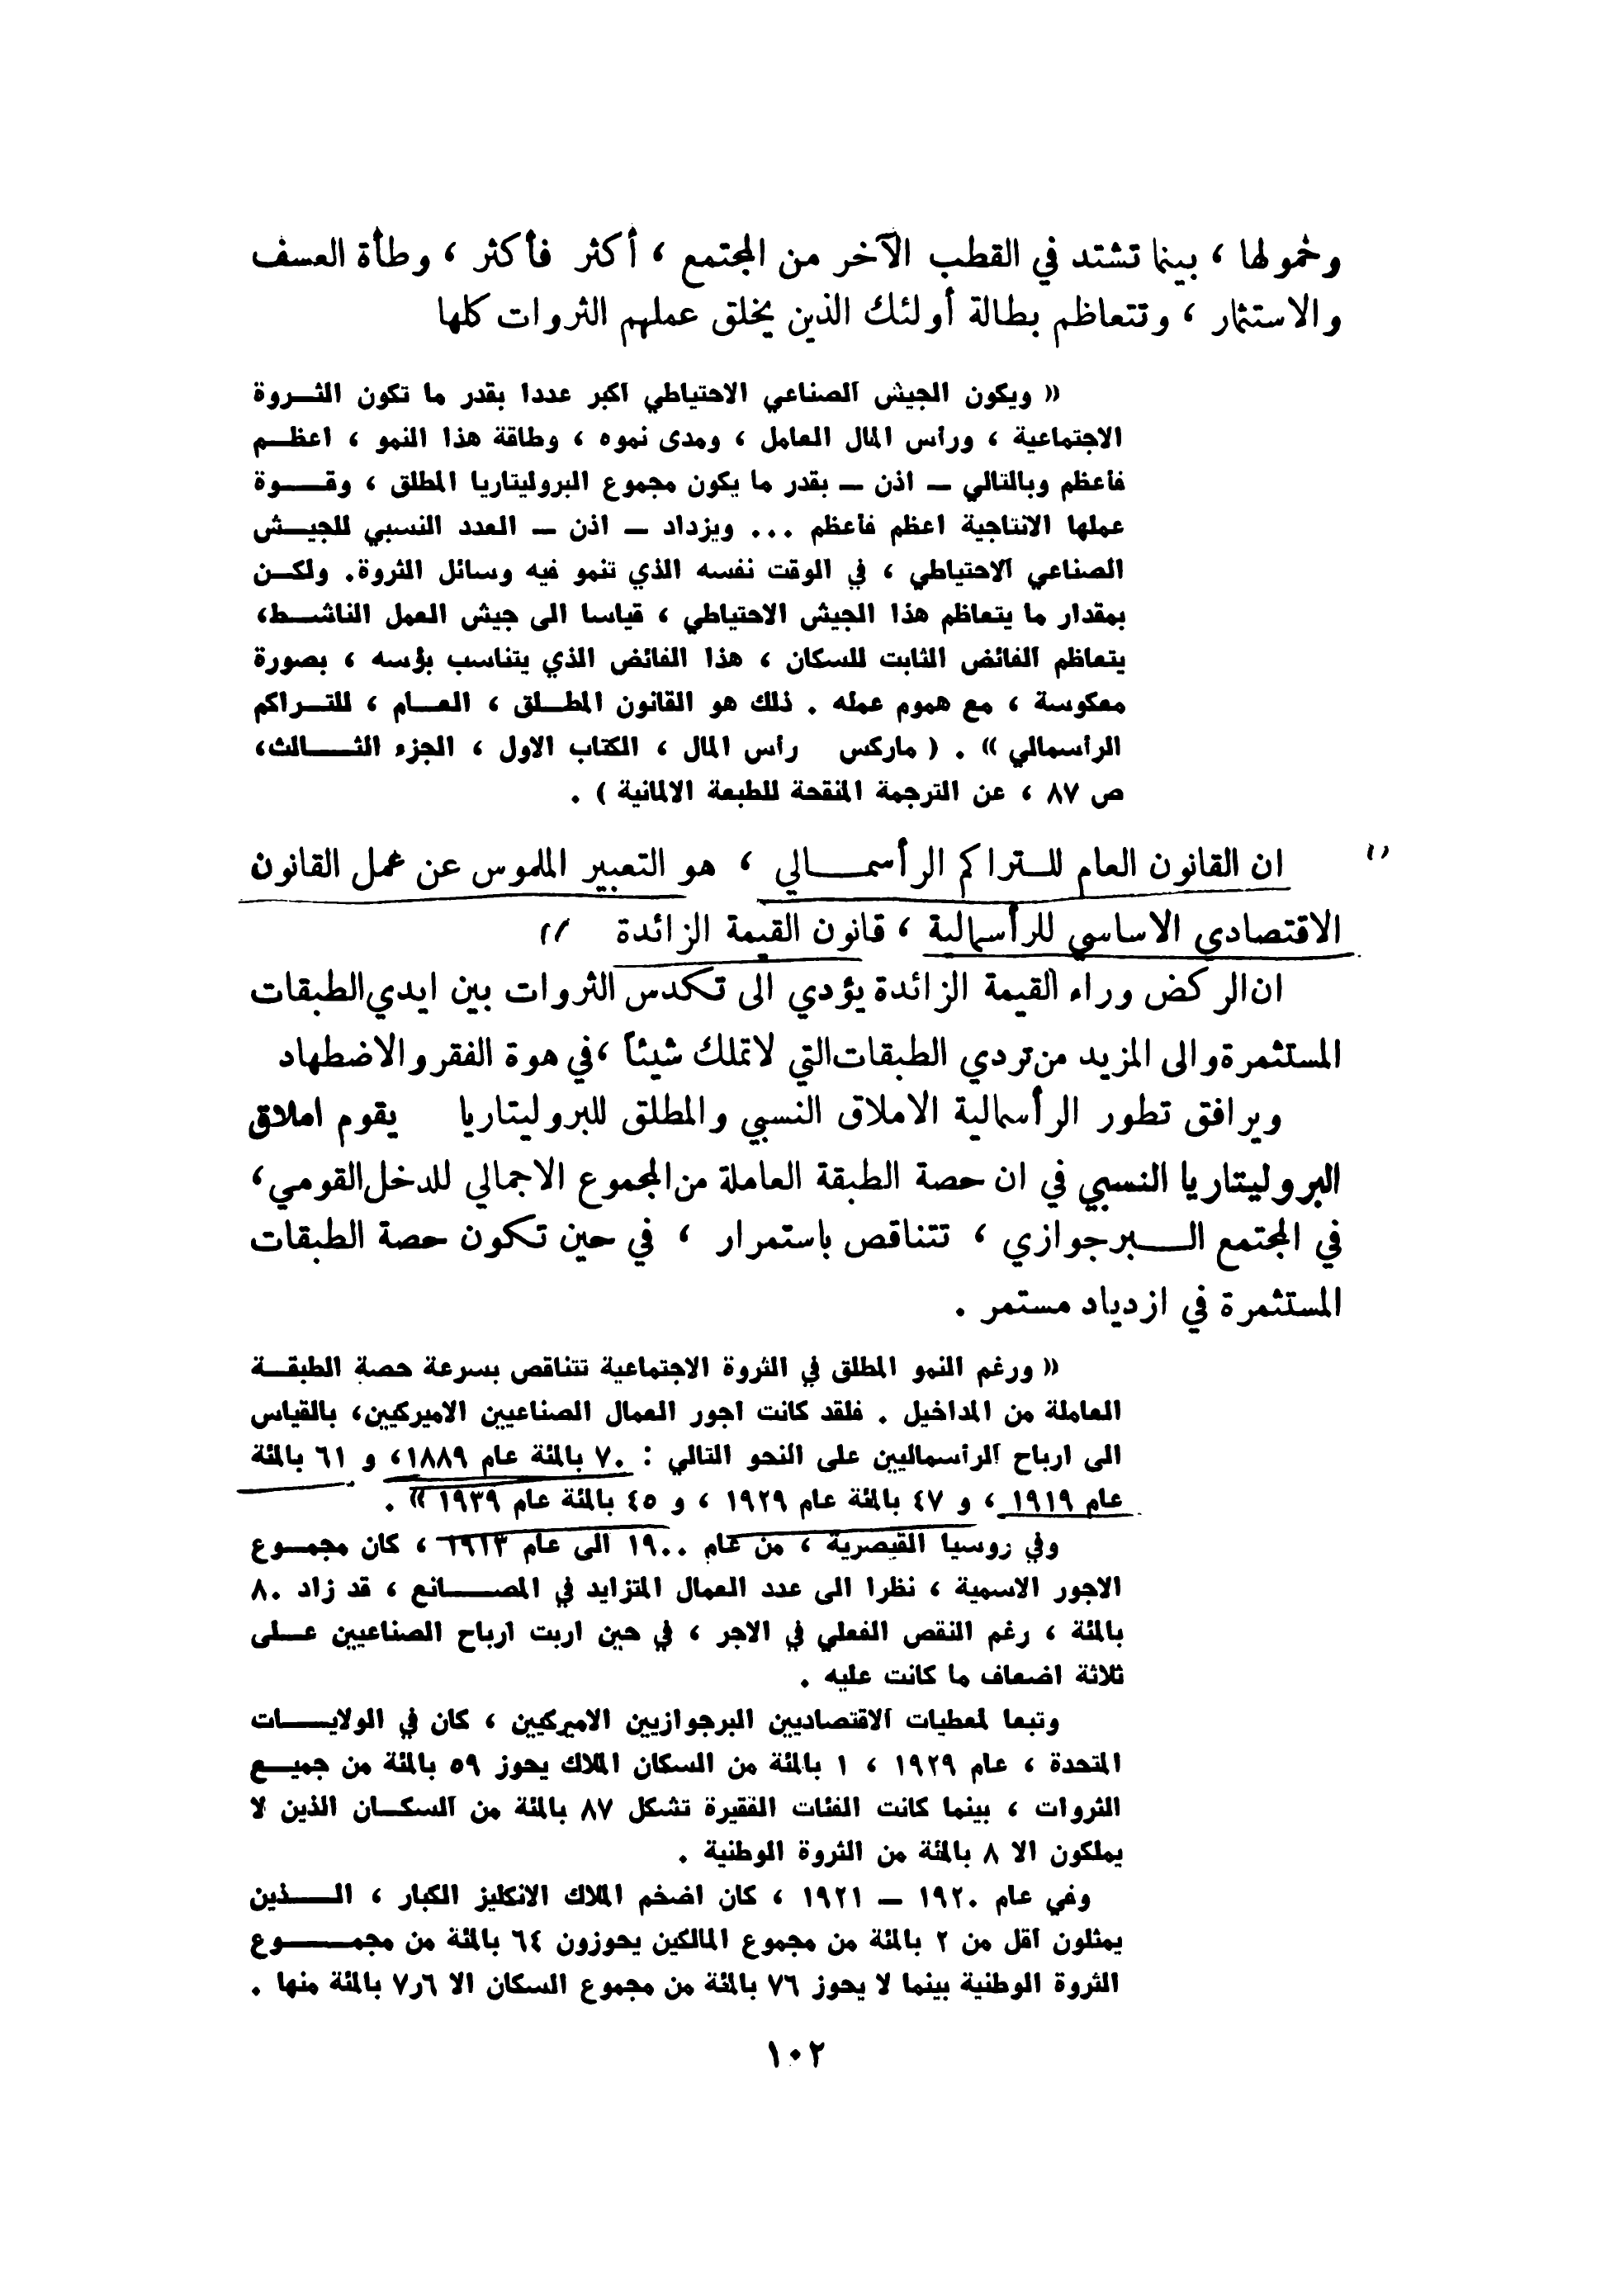 وخمولها ، بينما تشتد في القطب الآخر من المجتمع ، أكثر فأكثر ، وطأة العسف
والاستثمار ، وتتعاظم بطالة أولئك الذين يخلق عملهم الثروات كلها
« ويكون الجيش الصناعي الاحتياطي اكبر عددا بقدر ما تكون الثـــروة
الاجتماعية ، ورأس المال العامل ، ومدى نموه ، وطاقة هذا النمو ، اعظـــم
فأعظم وبالتالي ــ اذن ــ بقدر ما يكون مجموع البروليتاريا المطلق ، وقـــوة
عملها الانتاجية اعظم فأعظم ... ويزداد ــ اذن ــ العدد النسبي للجيـــش
الصناعي الاحتياطي ، في الوقت نفسه الذي تنمو فيه وسائل الثروة. ولكـــن
بمقدار ما يتعاظم هذا الجيش الاحتياطي ، قياسا الى جيش العمل الناشـــط،
يتعاظم الفائض الثابت للسكان ، هذا الفائض الذي يتناسب بؤسه ، بصورة
معكوسة ، مع هموم عمله . ذلك هو القانون المطـــلق ، العـــام ، للتـــراكم
الرأسمالي » . ( ماركس رأس المال ، الكتاب الاول ، الجزء الثـــالث،
ص ٨٧ ، عن الترجمة المنقحة للطبعة الالمانية ) .
ان القانون العام للــتراكم الرأسمـــالي ، هو التعبير الملموس عن عمل القانون
الاقتصادي الاساسي للرأسمالية ، قانون القيمة الزائدة
ان الركض وراء القيمة الزائدة يؤدي الى تكدس الثروات بين ايدي الطبقات
المستثمرة والى المزيد من تردي الطبقات التي لا تملك شيئاً ، في هوة الفقر والاضطهاد
ويرافق تطور الرأسمالية الاملاق النسبي والمطلق للبروليتاريا يقوم املاق
البروليتاريا النسبي في ان حصة الطبقة العاملة من المجموع الاجمالي للدخل القومي ،
في المجتمع الـــبرجوازي ، تتناقص باستمرار ، في حين تكون حصة الطبقات
المستثمرة في ازدياد مستمر .
« ورغم النمو المطلق في الثروة الاجتماعية تتناقص بسرعة حصة الطبقـــة
العاملة من المداخيل . فلقد كانت اجور العمال الصناعيين الاميركيين، بالقياس
الى ارباح الرأسماليين على النحو التالي : ٧٠ بالمئة عام ١٨٨٩، و ٦١ بالمئة
عام ١٩١٩ ، و ٤٧ بالمئة عام ١٩٢٩ ، و ٤٥ بالمئة عام ١٩٣٩ » .
وفي روسيا القيصرية ، من عام ١٩٠٠ الى عام ١٩١٣ ، كان مجمـــوع
الاجور الاسمية ، نظرا الى عدد العمال المتزايد في المصـــانع ، قد زاد ٨٠
بالمئة ، رغم النقص الفعلي في الاجر ، في حين اربت ارباح الصناعيين عـــلى
ثلاثة اضعاف ما كانت عليه .
وتبعا لمعطيات الاقتصاديين البرجوازيين الاميركيين ، كان في الولايـــات
المتحدة ، عام ١٩٢٩ ، ١ بالمئة من السكان الملاك يحوز ٥٩ بالمئة من جميـــع
الثروات ، بينما كانت الفئات الفقيرة تشكل ٨٧ بالمئة من السكـــان الذين لا
يملكون الا ٨ بالمئة من الثروة الوطنية .
وفي عام ١٩٢٠ ــ ١٩٢١ ، كان اضخم الملاك الانكليز الكبار ، الـــذين
يمثلون أقل من ٢ بالمئة من مجموع المالكين يحوزون ٦٤ بالمئة من مجمـــوع
الثروة الوطنية بينما لا يحوز ٧٦ بالمئة من مجموع السكان الا ٧٫٦ بالمئة منها .
١٠٢